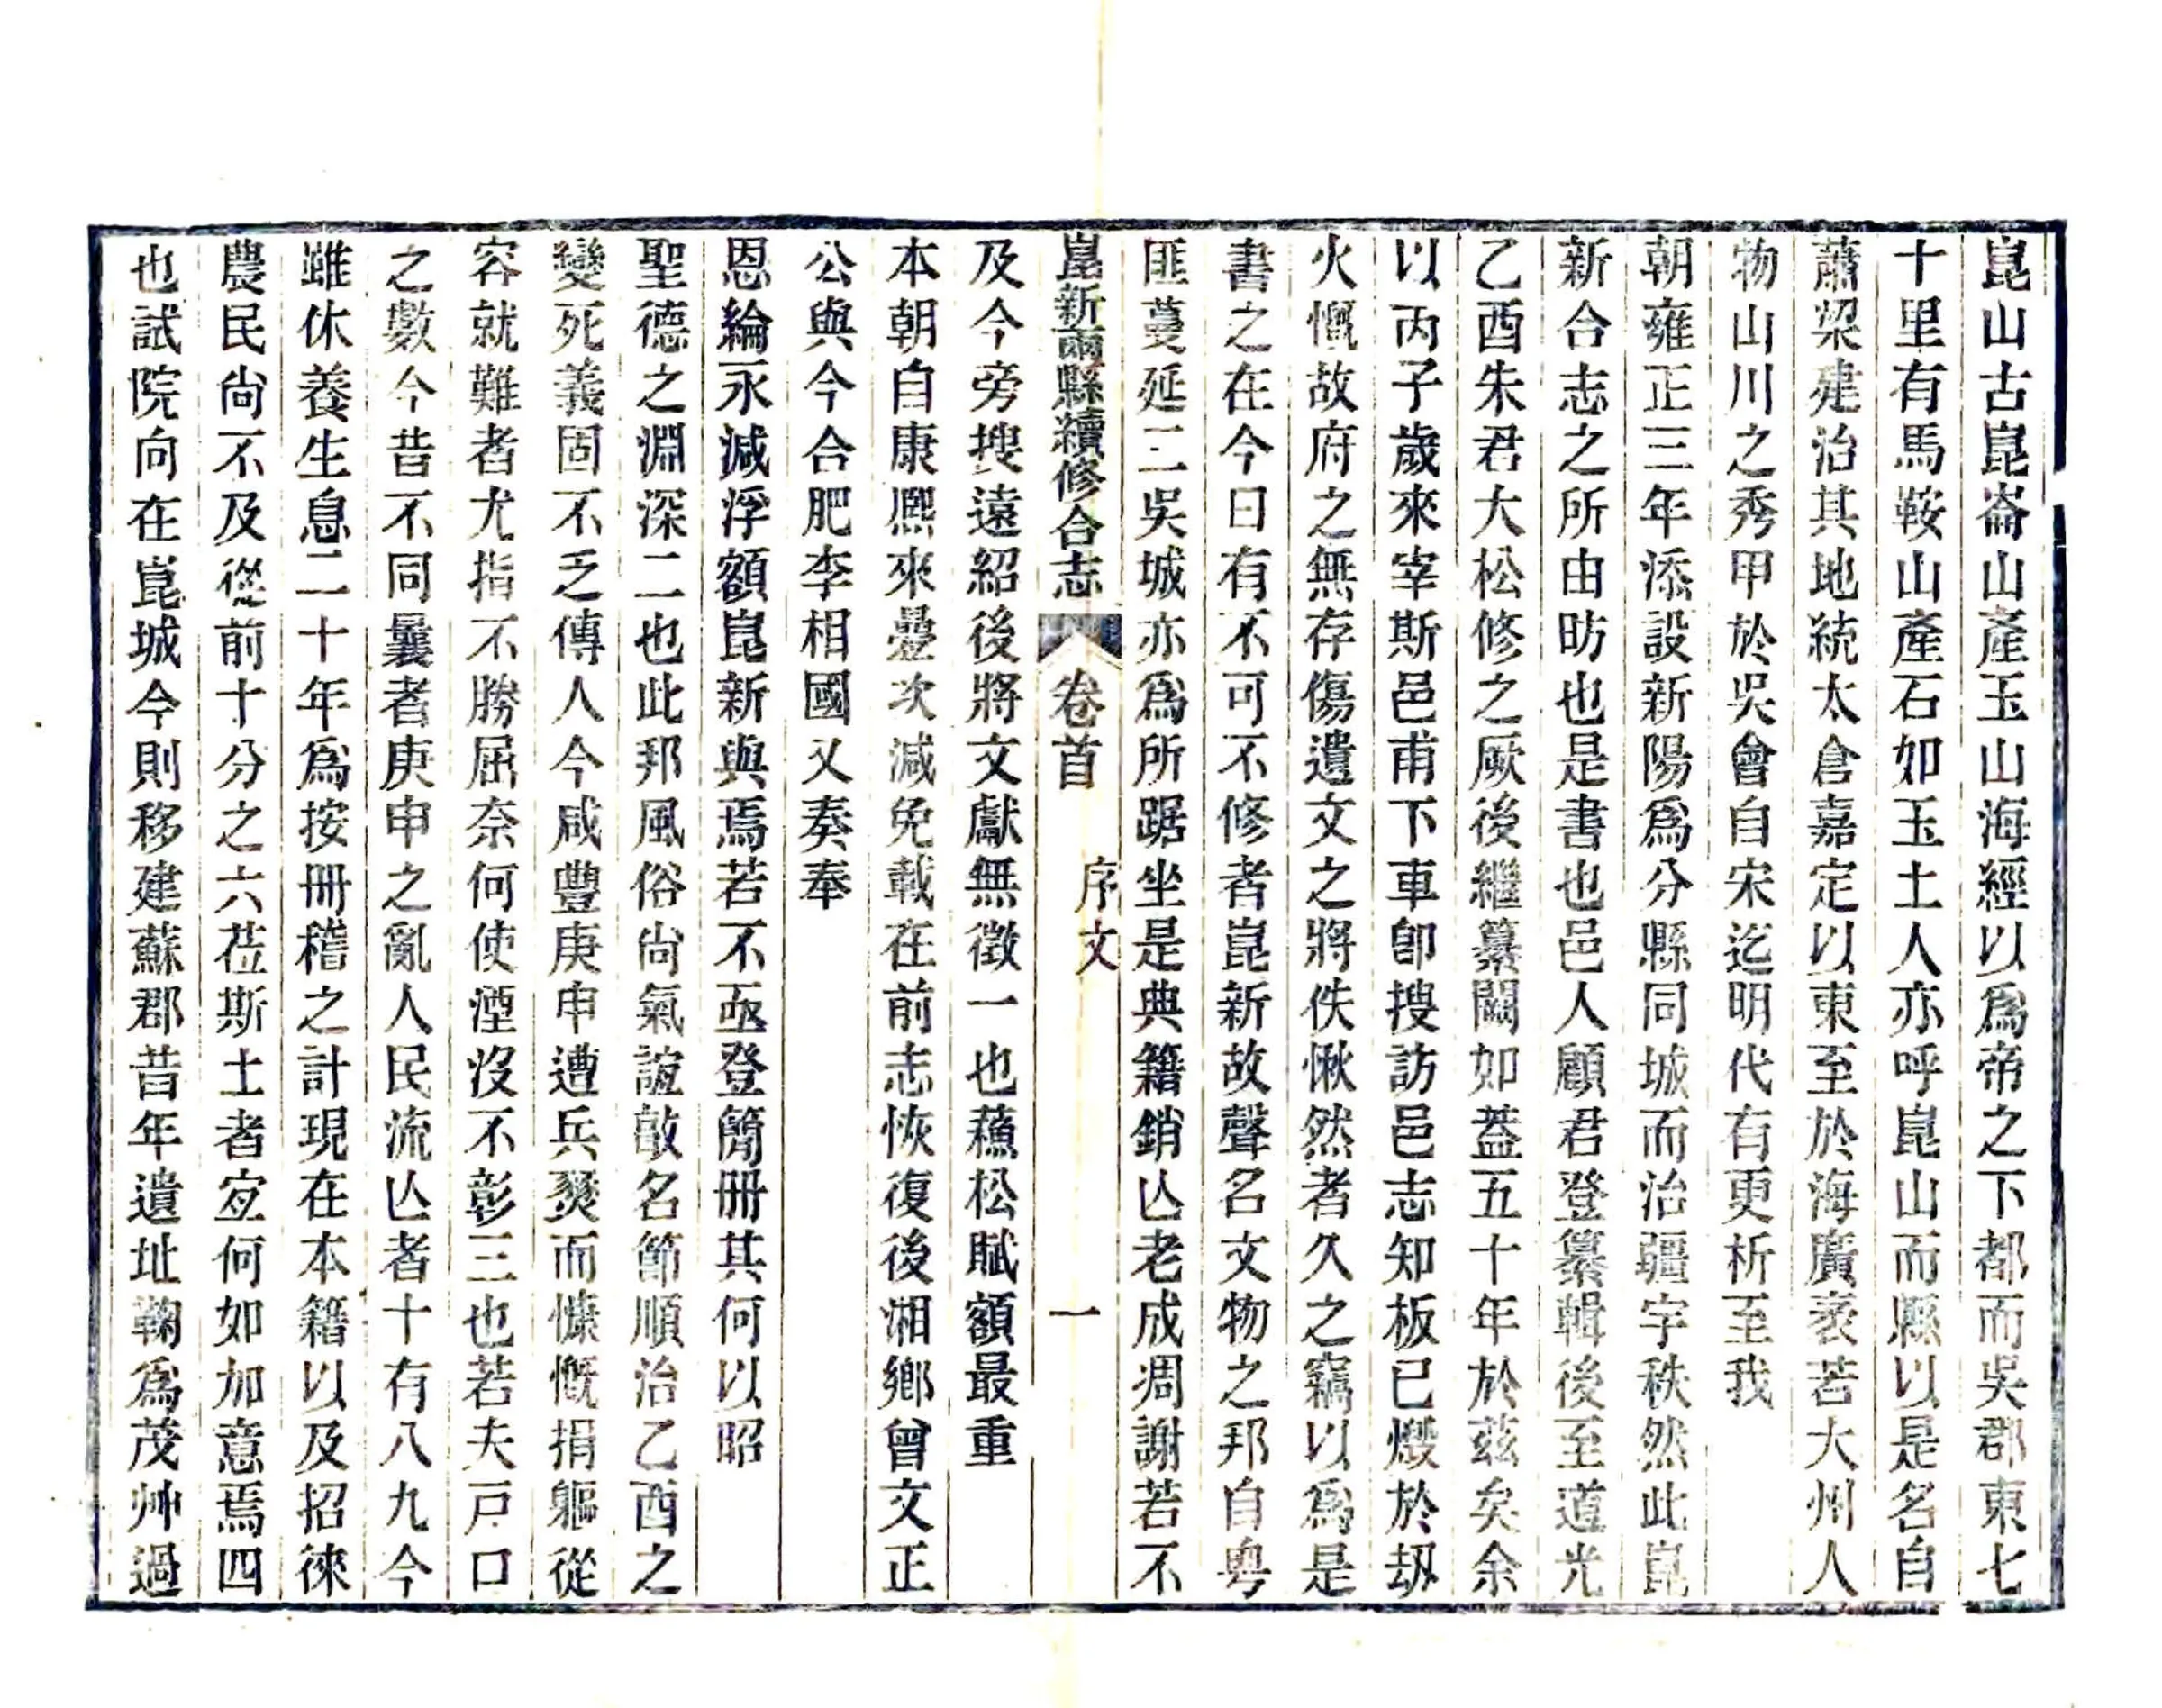 崑山古崑崙山產玉山海經以爲帝之下都而吳郡東七
十里有馬鞍山產石如玉土人亦呼崑山而縣以是名自
蕭梁建治其地統太倉嘉定以東至於海廣袤若大州人
物山川之秀甲於吳會自宋迄明代有更析至我
朝雍正三年添設新陽爲分縣同城而治疆宇秩然此崑
新合志之所由昉也是書也邑人顧君登纂輯後至道光
乙酉朱君大松修之厥後繼纂闕如葢五十年於茲矣余
以丙子歲來宰斯邑甫下車卽搜訪邑志知板已燬於刼
火慨故府之無存傷遺文之將佚愀然者久之竊以爲是
書之在今日有不可不修者崑新故聲名文物之邦自粵
匪蔓延二吳城亦爲所踞坐是典籍銷亾老成凋謝若不
崑新兩縣續修合志 卷首 序文 一
及今旁搜遠紹後將文獻無徵一也蘓松賦額最重
本朝自康熙來疊次減免載在前志恢復後湘鄉曾文正
公與今合肥李相國又奏奉
恩綸永減浮額崑新與焉若不亟登簡冊其何以昭
聖德之淵深二也此邦風俗尙氣誼敦名節順治乙酉之
變死義固不乏傳人今咸豐庚申遭兵燹而慷慨捐軀從
容就難者尤指不勝屈奈何使湮沒不彰三也若夫戶口
之數今昔不同曩者庚申之亂人民流亾者十有八九今
雖休養生息二十年爲按冊稽之計現在本籍以及招徠
農民尙不及從前十分之六莅斯土者宐何如加意焉四
也試院向在崑城今則移建蘇郡昔年遺址鞠爲茂艸過